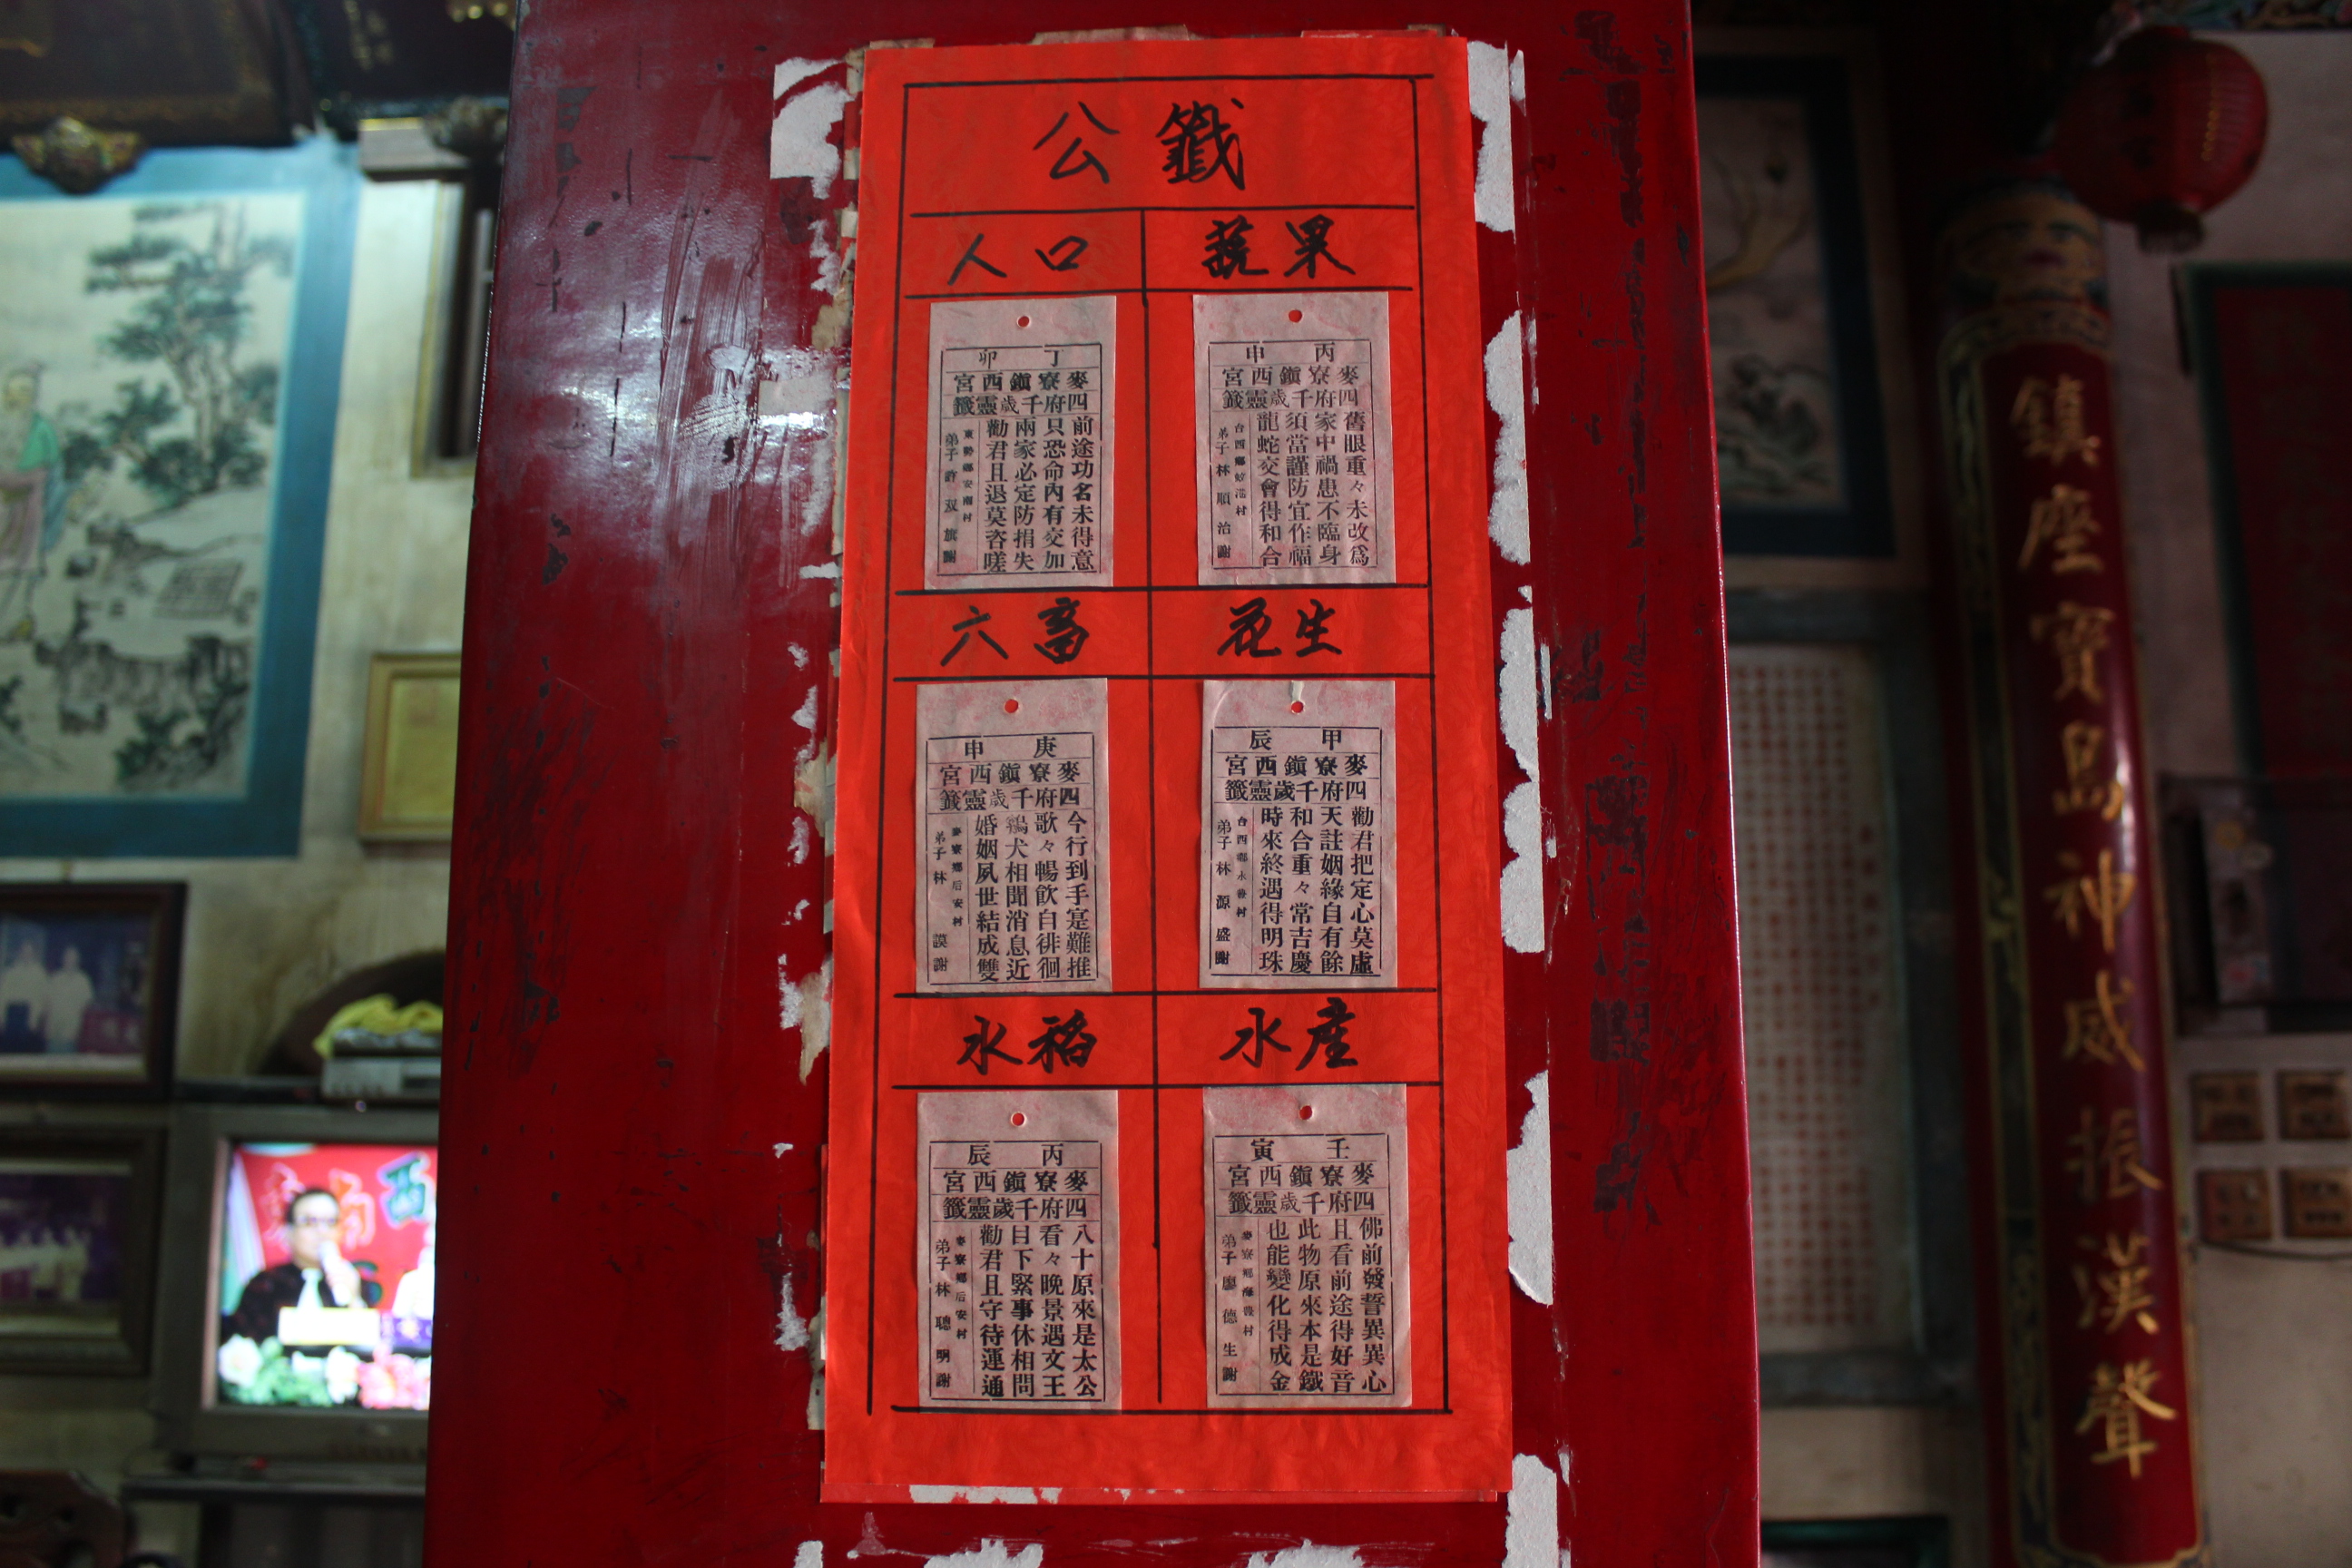 公籤
蔬果
人口
丙申
麥寮鎭西宮
四府千歲靈籤
舊眼重々未改爲
家中禍患不臨身
須當謹防宜作福
龍蛇交會得和合
弟子林順治謝
丁卯
麥寮鎭西宮
四府千歲靈籤
前途功名未得意
只恐命內有交加
兩家必定防損失
勸君且退莫咨嗟
東勢鄉安南村
弟子許双旗謝
花生
六畜
甲辰
麥寮鎭西宮
四府千歲靈籤
勸君把定心莫虛
天註姻緣自有餘
和合重々常吉慶
時來終遇得明珠
台西鄉永豐村
弟子林源盛謝
庚申
麥寮鎭西宮
四府千歲靈籤
今行到手寔難推
歌々暢飮自徘徊
鷄犬相聞消息近
婚姻夙世結成雙
麥寮鄉后安村
弟子林謨謝
水產
水稻
壬寅
麥寮鎭西宮
四府千歲靈籤
佛前發誓異異心
且看前途得好音
此物原來本是鐵
也能變化得成金
麥寮鄉海豐村
弟子廖德生謝
丙辰
麥寮鎭西宮
四府千歲靈籤
八十原來是太公
看々晚景遇文王
目下緊事休相問
勸君且守待運通
麥寮鄉后安村
弟子林聰明謝
鎮座寶島神威振漢聲
西